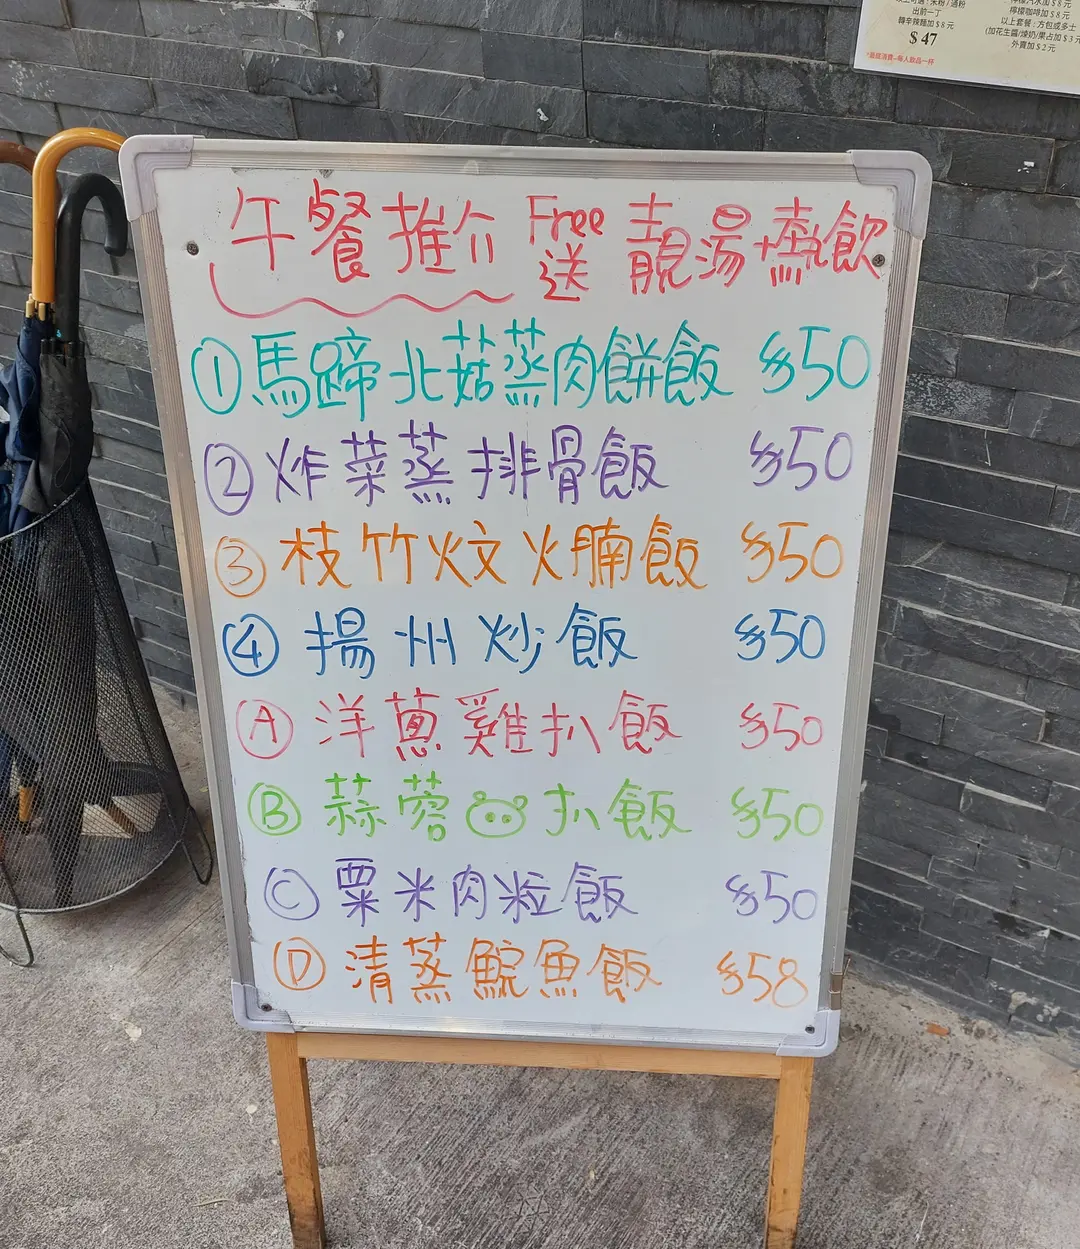 出前一丁
轉辛辣麵加 $ 8 元
$ 47
*最低消費-每人飲品一杯
檸檬咖啡加 $ 8 元
以上套餐 : 方包或多士
(加花生醬/煉奶/果占加 $ 3
外賣加 $ 2 元
午餐推介 Free 送 靚湯+熱飲
① 馬蹄北菇蒸肉餅飯 $50
② 炸菜蒸排骨飯 $50
③ 枝竹炆火腩飯 $50
④ 揚州炒飯 $50
Ⓐ 洋蔥雞扒飯 $50
Ⓑ 蒜蓉🐷扒飯 $50
Ⓒ 粟米肉粒飯 $50
Ⓓ 清蒸鯇魚飯 $58